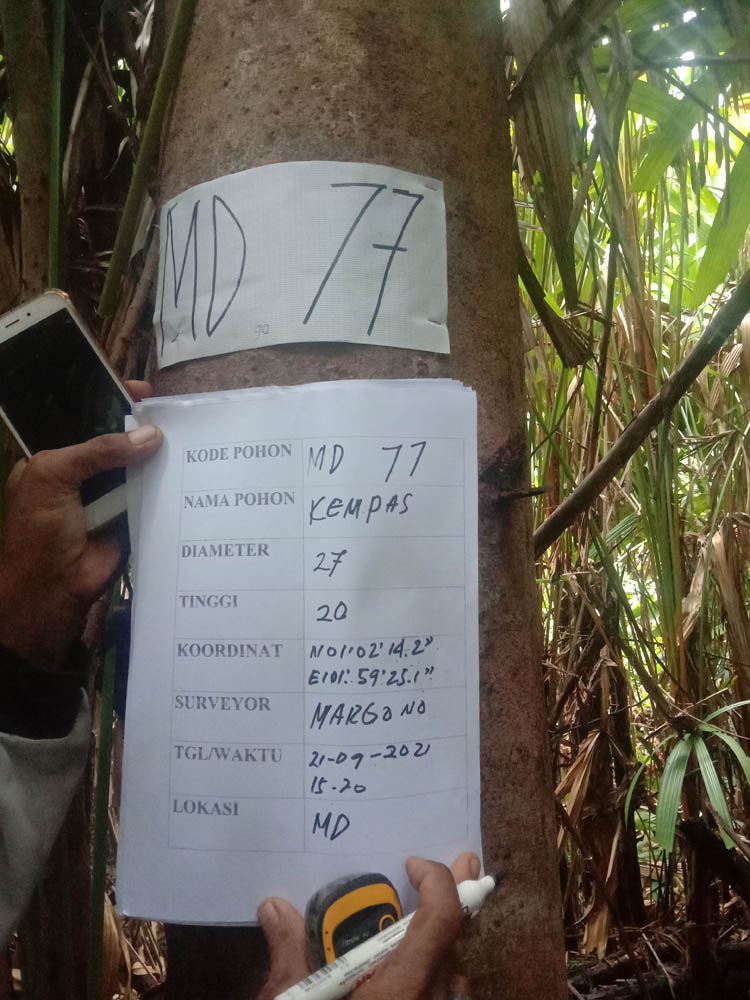 MD 77
KODE POHON MD 77
NAMA POHON KEMPAS
DIAMETER 27
TINGGI 20
KOORDINAT N01:02'14.2"
E101:59'25.1"
SURVEYOR MARGONO
TGL/WAKTU 21-09-2021
15-20
LOKASI MD